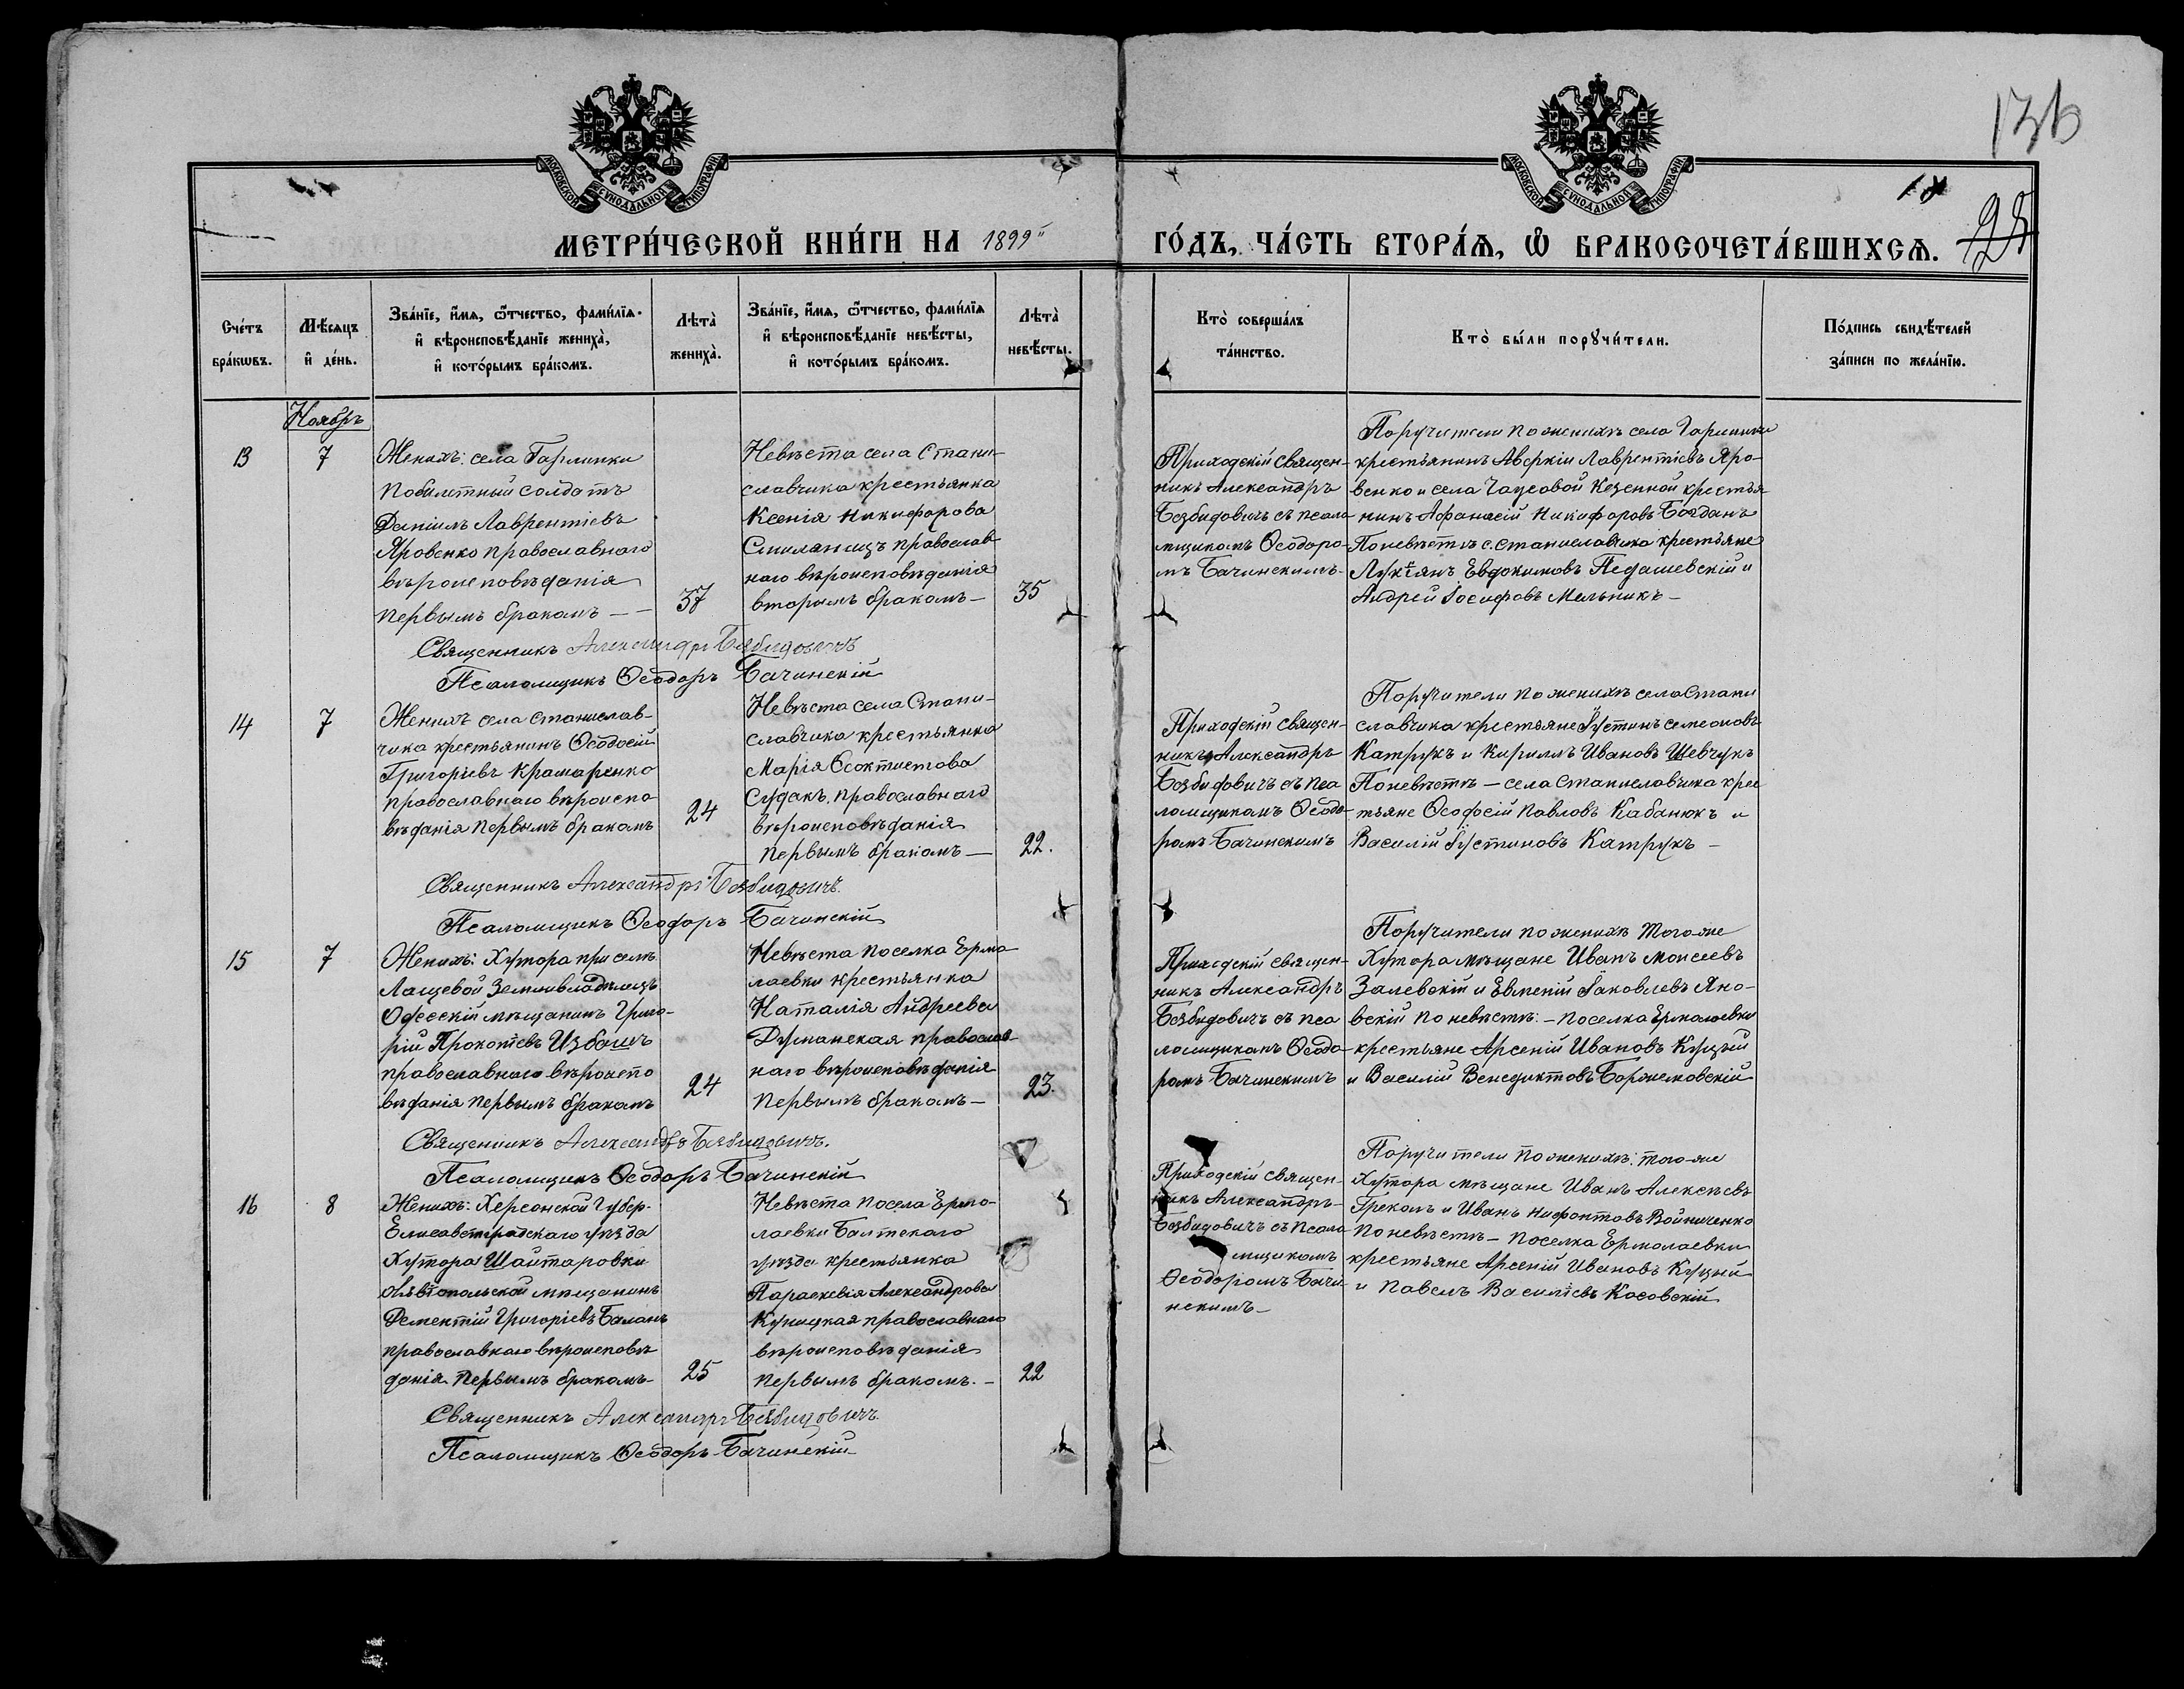 136
МОСКОВСКОЙ СѴНОДАЛЬНОЙ ТИПОГРАФІИ
МОСКОВСКОЙ СѴНОДАЛЬНОЙ ТИПОГРАФІИ
МЕТРИ́ЧЕСКОЙ КНИ́ГИ НА 1899 ГО́ДЪ, ЧА́СТЬ ВТОРА́Ѧ, Ѡ҆ БРАКОСОЧЕТА́ВШИХСѦ.
Сче́тъ
бра́кѡвъ.
Мѣ́сяцъ
и҆ де́нь.
Зва́нїе, и҆́мѧ, ѻ҆́тчество, фами́лїѧ
и҆ вѣроисповѣ́данїе жениха̀,
и҆ кото́рымъ бра́комъ.
Лѣта̀
жениха̀.
Зва́нїе, и҆́мѧ, ѻ҆́тчество, фами́лїѧ
и҆ вѣроисповѣ́данїе невѣ́сты,
и҆ кото́рымъ бра́комъ.
Лѣта̀
невѣ́сты.
Кто̀ соверша́лъ
та́инство.
Кто̀ бы́ли порꙋчи́тели.
По́дпись свидѣ́телей
за́писи по жела́нїю.
Ноябрь
13
7
Женихъ: села Гарлинки
побилетный солдатъ
Даніилъ Лаврентіевъ
Яровенко православнаго
вѣроисповѣданія
первымъ бракомъ —
37
Невѣста села Стани-
славчика крестьянка
Ксенія Никифорова
Смилянецъ православ
наго вѣроисповѣданія
вторымъ бракомъ —
35
Приходскій Священ-
никъ Александръ
Безбидовичъ съ псало
мщикомъ Ѳеодоро-
мъ Бачинскимъ.
Поручители по женихѣ села Гарлинки
крестьянинъ Аверкій Лаврентіевъ Яро-
венко и села Чаусовой Казенной крестья
нинъ Афанасій Никифоровъ Богданъ
По невѣстѣ с. Станиславчика крестьяне
Лукіянъ Евдокимовъ Педашевскій и
Андрей Іосифовъ Мельникъ —
Священникъ Александръ Безбидовичъ
Псаломщикъ Ѳеодоръ Бачинскій
14
7
Женихъ села Станислав-
чика крестьянинъ Ѳеодосій
Григорьевъ Крамаренко
православнаго вѣроиспо
вѣданія первымъ бракомъ
24
Невѣста села Стани-
славчика крестьянка
Марія Ѳеоктистова
Судакъ, православнаго
вѣроисповѣданія
первымъ бракомъ —
22.
Приходскій Священ-
никъ Александръ
Безбидовичъ съ пса
ломщикомъ Ѳеодо-
ромъ Бачинскимъ
Поручители по женихѣ села Стани
славчика крестьяне Іустинъ Симеоновъ
Катрукъ и Кириллъ Ивановъ Шевчукъ
По невѣстѣ — села Станиславчика крес
тьяне Ѳеодосій Павловъ Кабанюкъ и
Василій Іустиновъ Катрукъ —
Священникъ Александръ Безбидовичъ.
Псаломщикъ Ѳеодоръ Бачинскій
15
7
Женихъ: Хутора при селѣ
Лащевой Землевладѣлецъ
Одесскій мѣщанинъ Григо-
рій Прокопіевъ Избашъ
православнаго вѣроиспо
вѣданія первымъ бракомъ
24
Невѣста поселка Ермо
лаевки крестьянка
Наталія Андреева
Думанская православ-
наго вѣроисповѣданія
первымъ бракомъ —
23.
Приходскій Священ-
никъ Александръ
Безбидовичъ съ пса
ломщикомъ Ѳеодо-
ромъ Бачинскимъ
Поручители по женихѣ того же
Хутора мѣщане Иванъ Моисеевъ
Залевскій и Евменій Іаковлевъ Яно-
вскій По невѣстѣ: — поселка Ермолаевки
крестьяне Арсеній Ивановъ Куцый
и Василій Венедиктовъ Боржемовскій
Священникъ Александръ Безбидовичъ.
Псаломщикъ Ѳеодоръ Бачинскій
16
8
Женихъ: Херсонской Губер-
Елисаветградскаго уѣзда
Хутора Шайтаровки
Ольвіопольской мѣщанинъ
Дементій Григоріевъ Баланъ
православнаго вѣроисповѣ
данія первымъ бракомъ-
25
Невѣста посела Ермо-
лаевки Балтскаго
уѣзда крестьянка
Параскевія Александрова
Куницкая православнаго
вѣроисповѣданія
первымъ бракомъ. —
22
Приходскій Священ-
никъ Александръ
Безбидовичъ съ псало
мщикомъ
Ѳеодоромъ Бачи-
нскимъ —
Поручители по женихѣ: того же
Хутора мѣщане Иванъ Алексѣевъ
Грекалъ и Иванъ Нифонтовъ Войниченко
По невѣстѣ — поселка Ермолаевки
крестьяне Арсеній Ивановъ Куцый
и Павелъ Василіевъ Косовскій
Священникъ Александръ Безбидовичъ.
Псаломщикъ Ѳеодоръ Бачинскій